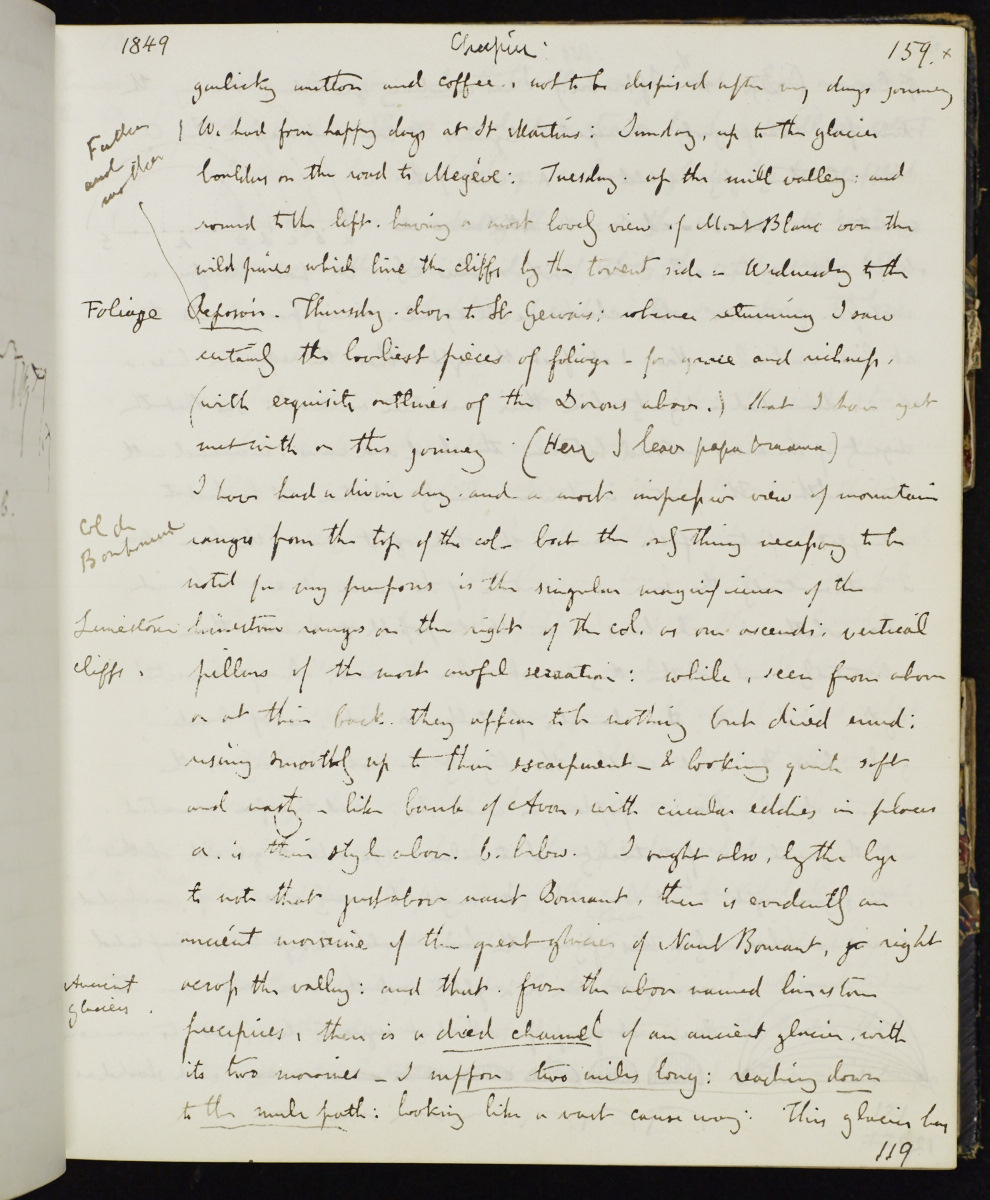 1849
Chapiu:
159. x
garlicky mutton and coffee. not to be despised after my days journey
Father and mother
We had four happy days at St Martins: Sunday, up to the glacier
boulders on the road to Megève: Tuesday. up the mill valley: and
round to the left. having a most lovely view of Mont Blanc over the
wild pines which line the cliffs by the torrent side - Wednesday to the
Foliage
Reposoir. Thursday. drove to St Gervais: whence returning I saw
certainly the loveliest pieces of foliage - for grace and richness,
(with exquisite outlines of the Dorons above.) that I have yet
met with on this journey. (Here I leave papa & mama)
I have had a divine day. and a most impressive view of mountain
Col de Bonhomme
ranges from the top of the col- but the only thing necessary to be
noted for my purposes is the singular magnificence of the
Limestone cliffs.
limestone ranges on the right of the col. as one ascends: vertical
pillars of the most awful serration: while, seen from above
or at their back. they appear to be nothing but dried mud:
rising smoothly up to their escarpment - & looking quite soft
and vast - like bank of Avon, with circular eddies in places
a. is their style above. b. below. I ought also, by the bye
to note that just above nant Bornant, there is evidently an
ancient moraine of the great glacier of Nant Bornant, right
Ancient glaciers.
across the valley: and that. from the above named limestone
precipices, there is a dried channel of an ancient glacier, with
its two moraines - I suppose two miles long: reaching down
to the mule path: looking like a vast causeway: This glacier has
119